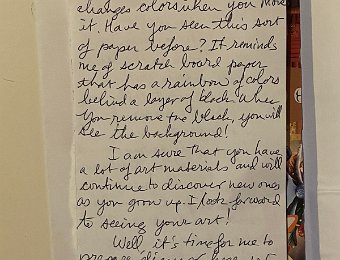 changes colors when you move
it. Have you seen this sort
of paper before? It reminds
me of scratch board paper
that has a rainbow of colors
behind a layer of black. When
you remove the black, you will
see the background!
I am sure that you have
a lot of art materials and will
continue to discover new ones
as you grow up. I look forward
to seeing your art!
Well it's time for me to
prepare dinner